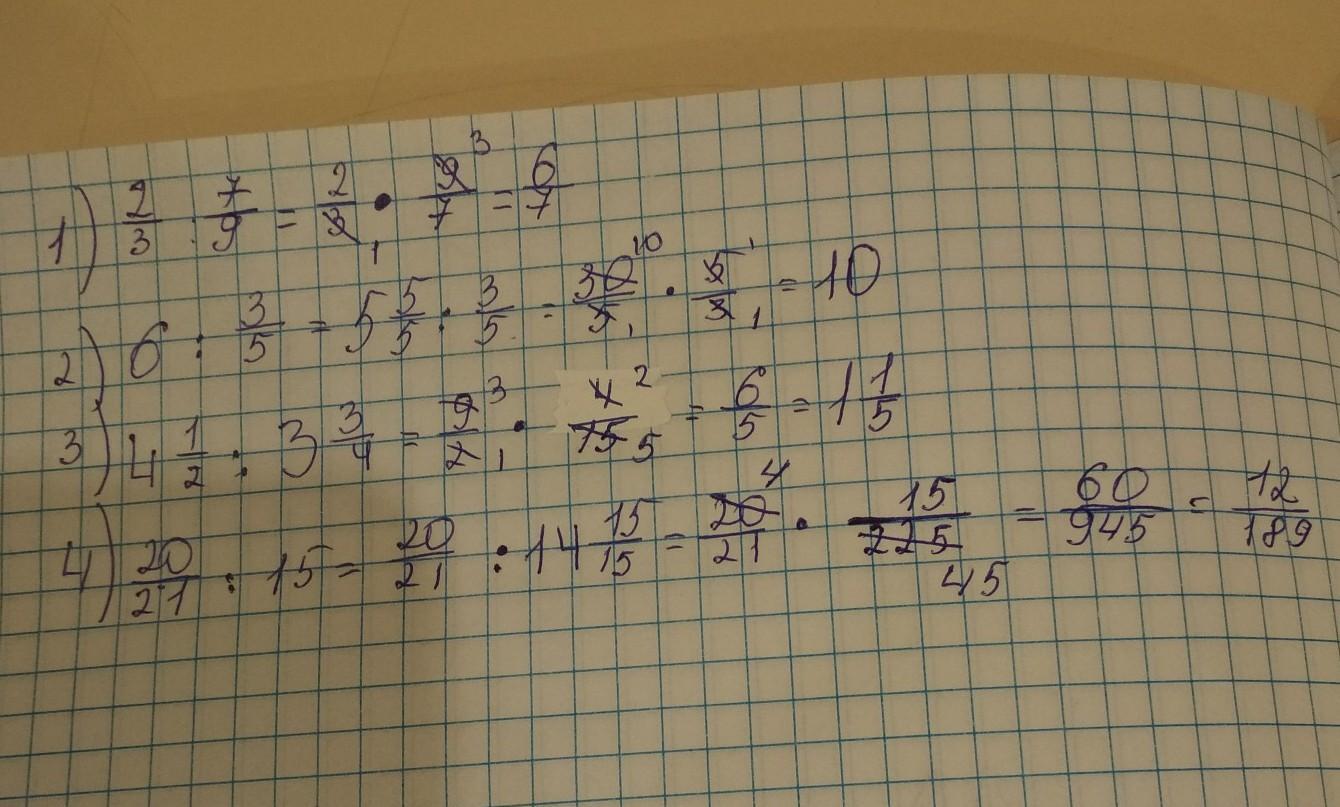 1) 2/3 : 7/9 = 2/3 1 · 9/7 3 = 6/7
2) 6 : 3/5 = 5 5/5 : 3/5 = 30/5 10 1 · 5/3 1 1 = 10
3) 4 1/2 : 3 3/4 = 9/2 3 1 · 4/15 2 5 = 6/5 = 1 1/5
4) 20/21 : 15 = 20/21 : 14 15/15 = 20/21 4 · 15/225 45 = 60/945 = 12/189